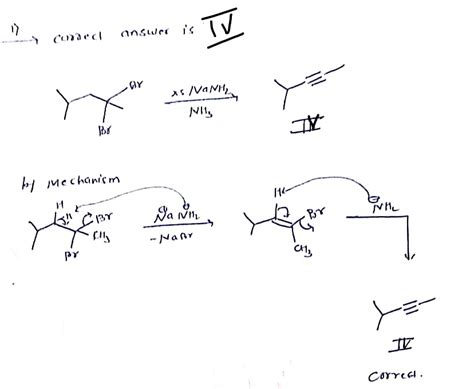 1) → correct answer is IV
Br
xs NaNH₂
NH₃
Br
IV
b) Mechanism
H
H Br
CH₃
Br
Na⊕ ⊖NH₂
- NaBr
H
Br
CH₃
⊖NH₂
IV
Correct.